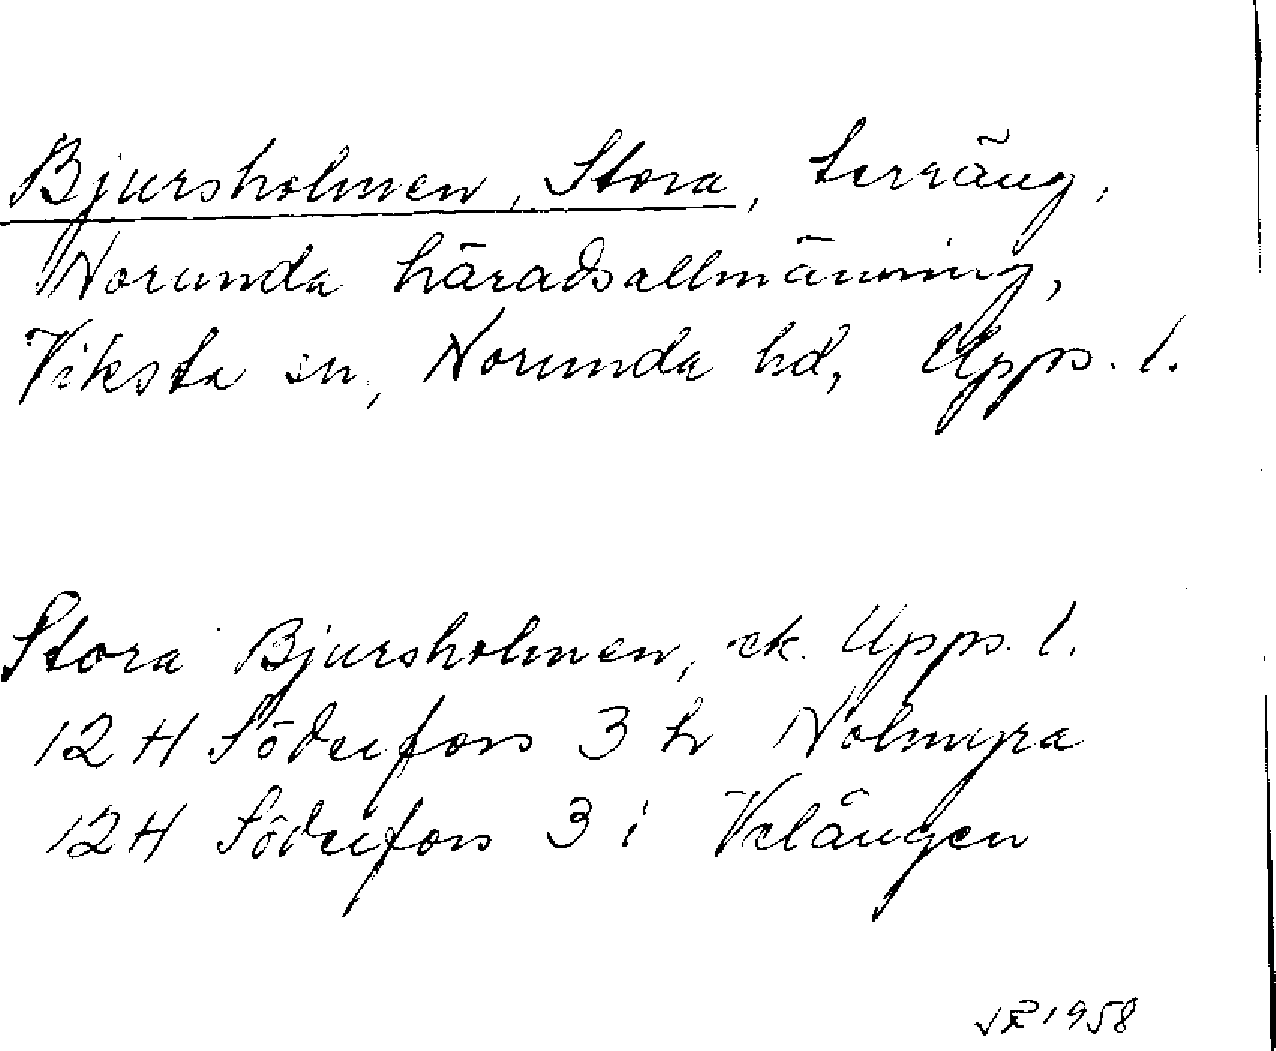 Bjursholmen, Stora, terräng,
Norunda häradsallmänning,
Viksta sn, Norunda hd, Upps. l.
Stora Bjursholmen, ek. Upps. l.
12H Söderfors 3 h Nolmyra
12H Söderfors 3 i Velängen
1958